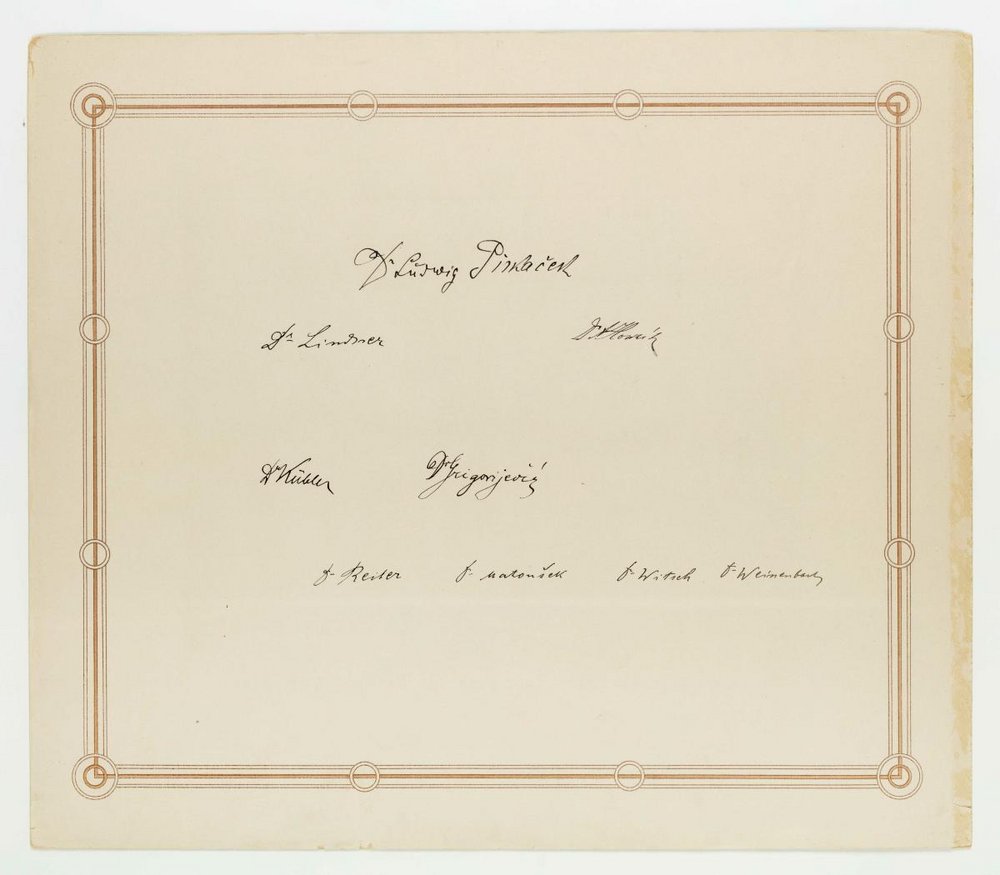 Dr Ludwig Piskaček
Dr Lindner Dr
Dr Kübler Dr Grigorijević
Dr Reiter Dr Matoušek Dr Witsch Dr Weissenbach